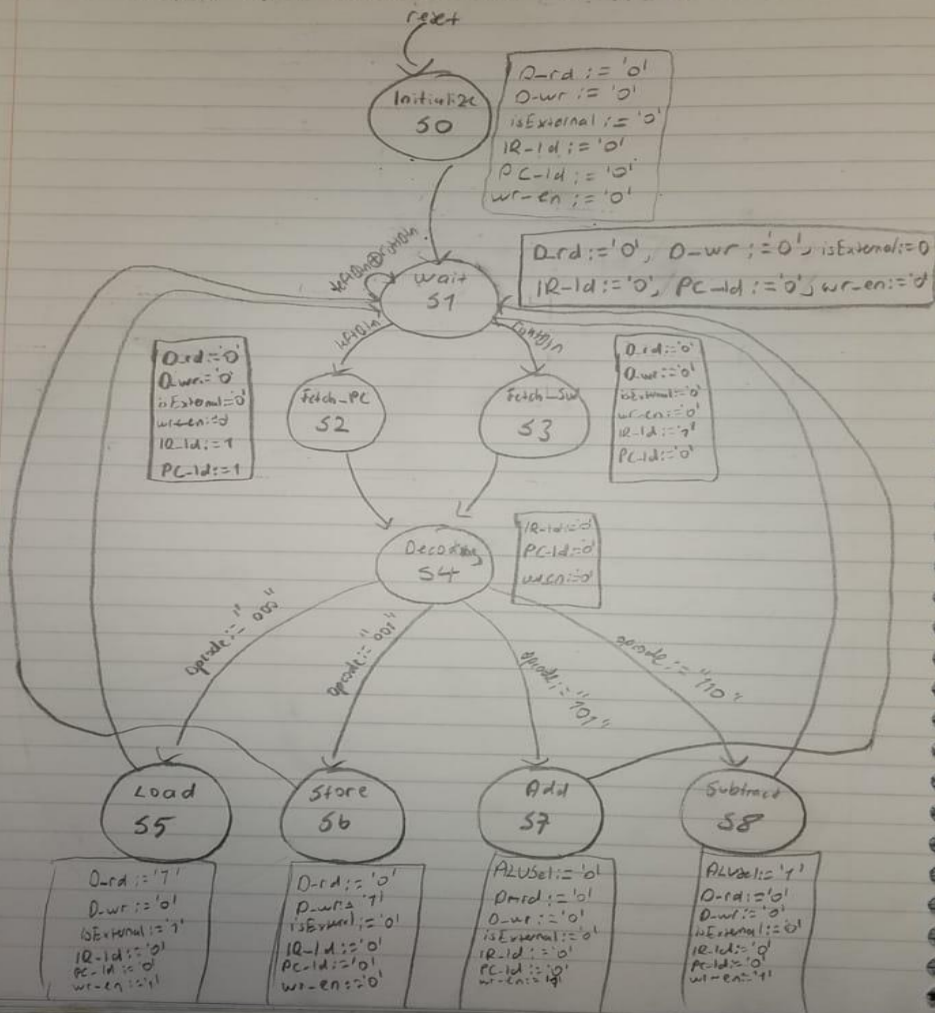 reset
Initialize
S0
D_rd := '0'
D-wr := '0'
isExternal := '0'
IR-ld := '0'
PC-ld := '0'
wr-en := '0'
wait
S1
D_rd := '0', D-wr := '0', isExternal := 0
IR-ld := '0', PC-ld := '0', wr-en := '0'
D_rd := '0'
D_wr := '0'
isExternal = 0
wr-en := 0
IR-ld := 1
PC-ld := 1
Fetch_PC
S2
Fetch_Sw
S3
D_rd := '0'
D_wr := '0'
isExternal := '0'
wr-en := '0'
IR-ld := '1'
PC-ld := '0'
Decoding
S4
IR-ld := 0
PC-ld := 0
wr-en := 0
opcode := "000"
opcode := "001"
opcode := "101"
opcode := "110"
Load
S5
Store
S6
Add
S7
Subtract
S8
D_rd := '1'
D_wr := '0'
isExternal := '1'
IR-ld := '0'
PC-ld := '0'
wr-en := '1'
D-rd := '0'
D-wr = '1'
isExternal := '0'
IR-ld := '0'
PC-ld := '0'
wr-en := '0'
ALUSel := '0'
D_rd := '0'
D_wr := '0'
isExternal := '0'
IR-ld := '0'
PC-ld := '0'
wr-en :=
ALUSel := '1'
D_rd := '0'
D_wr := '0'
isExternal := '0'
IR-ld := '0'
PC-ld := '0'
wr-en := '1'